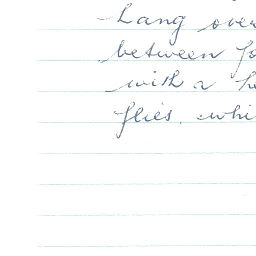 hang over
between
with a
flies. whi